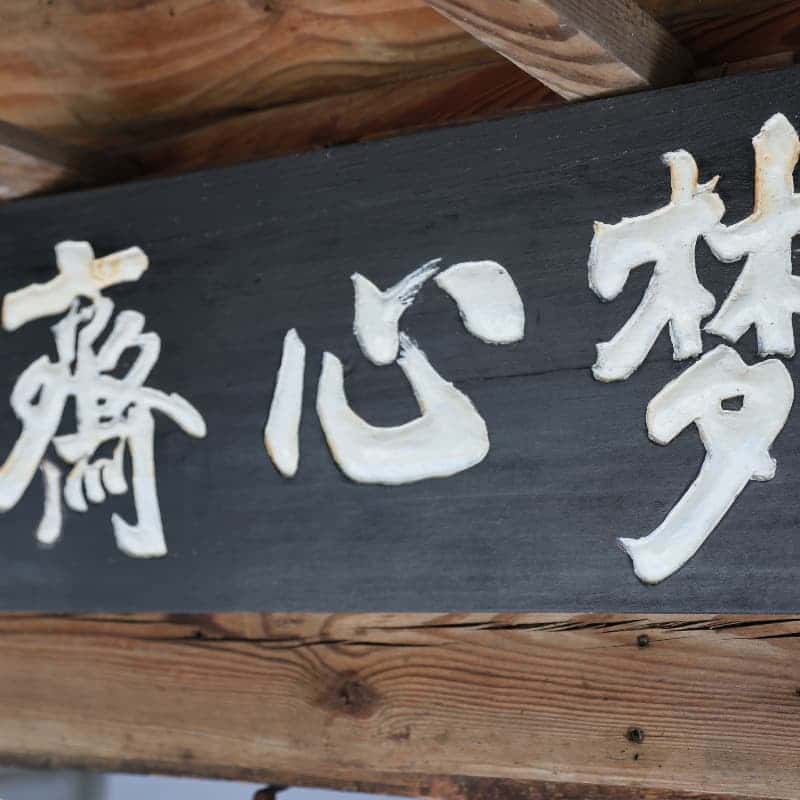 梦心齋